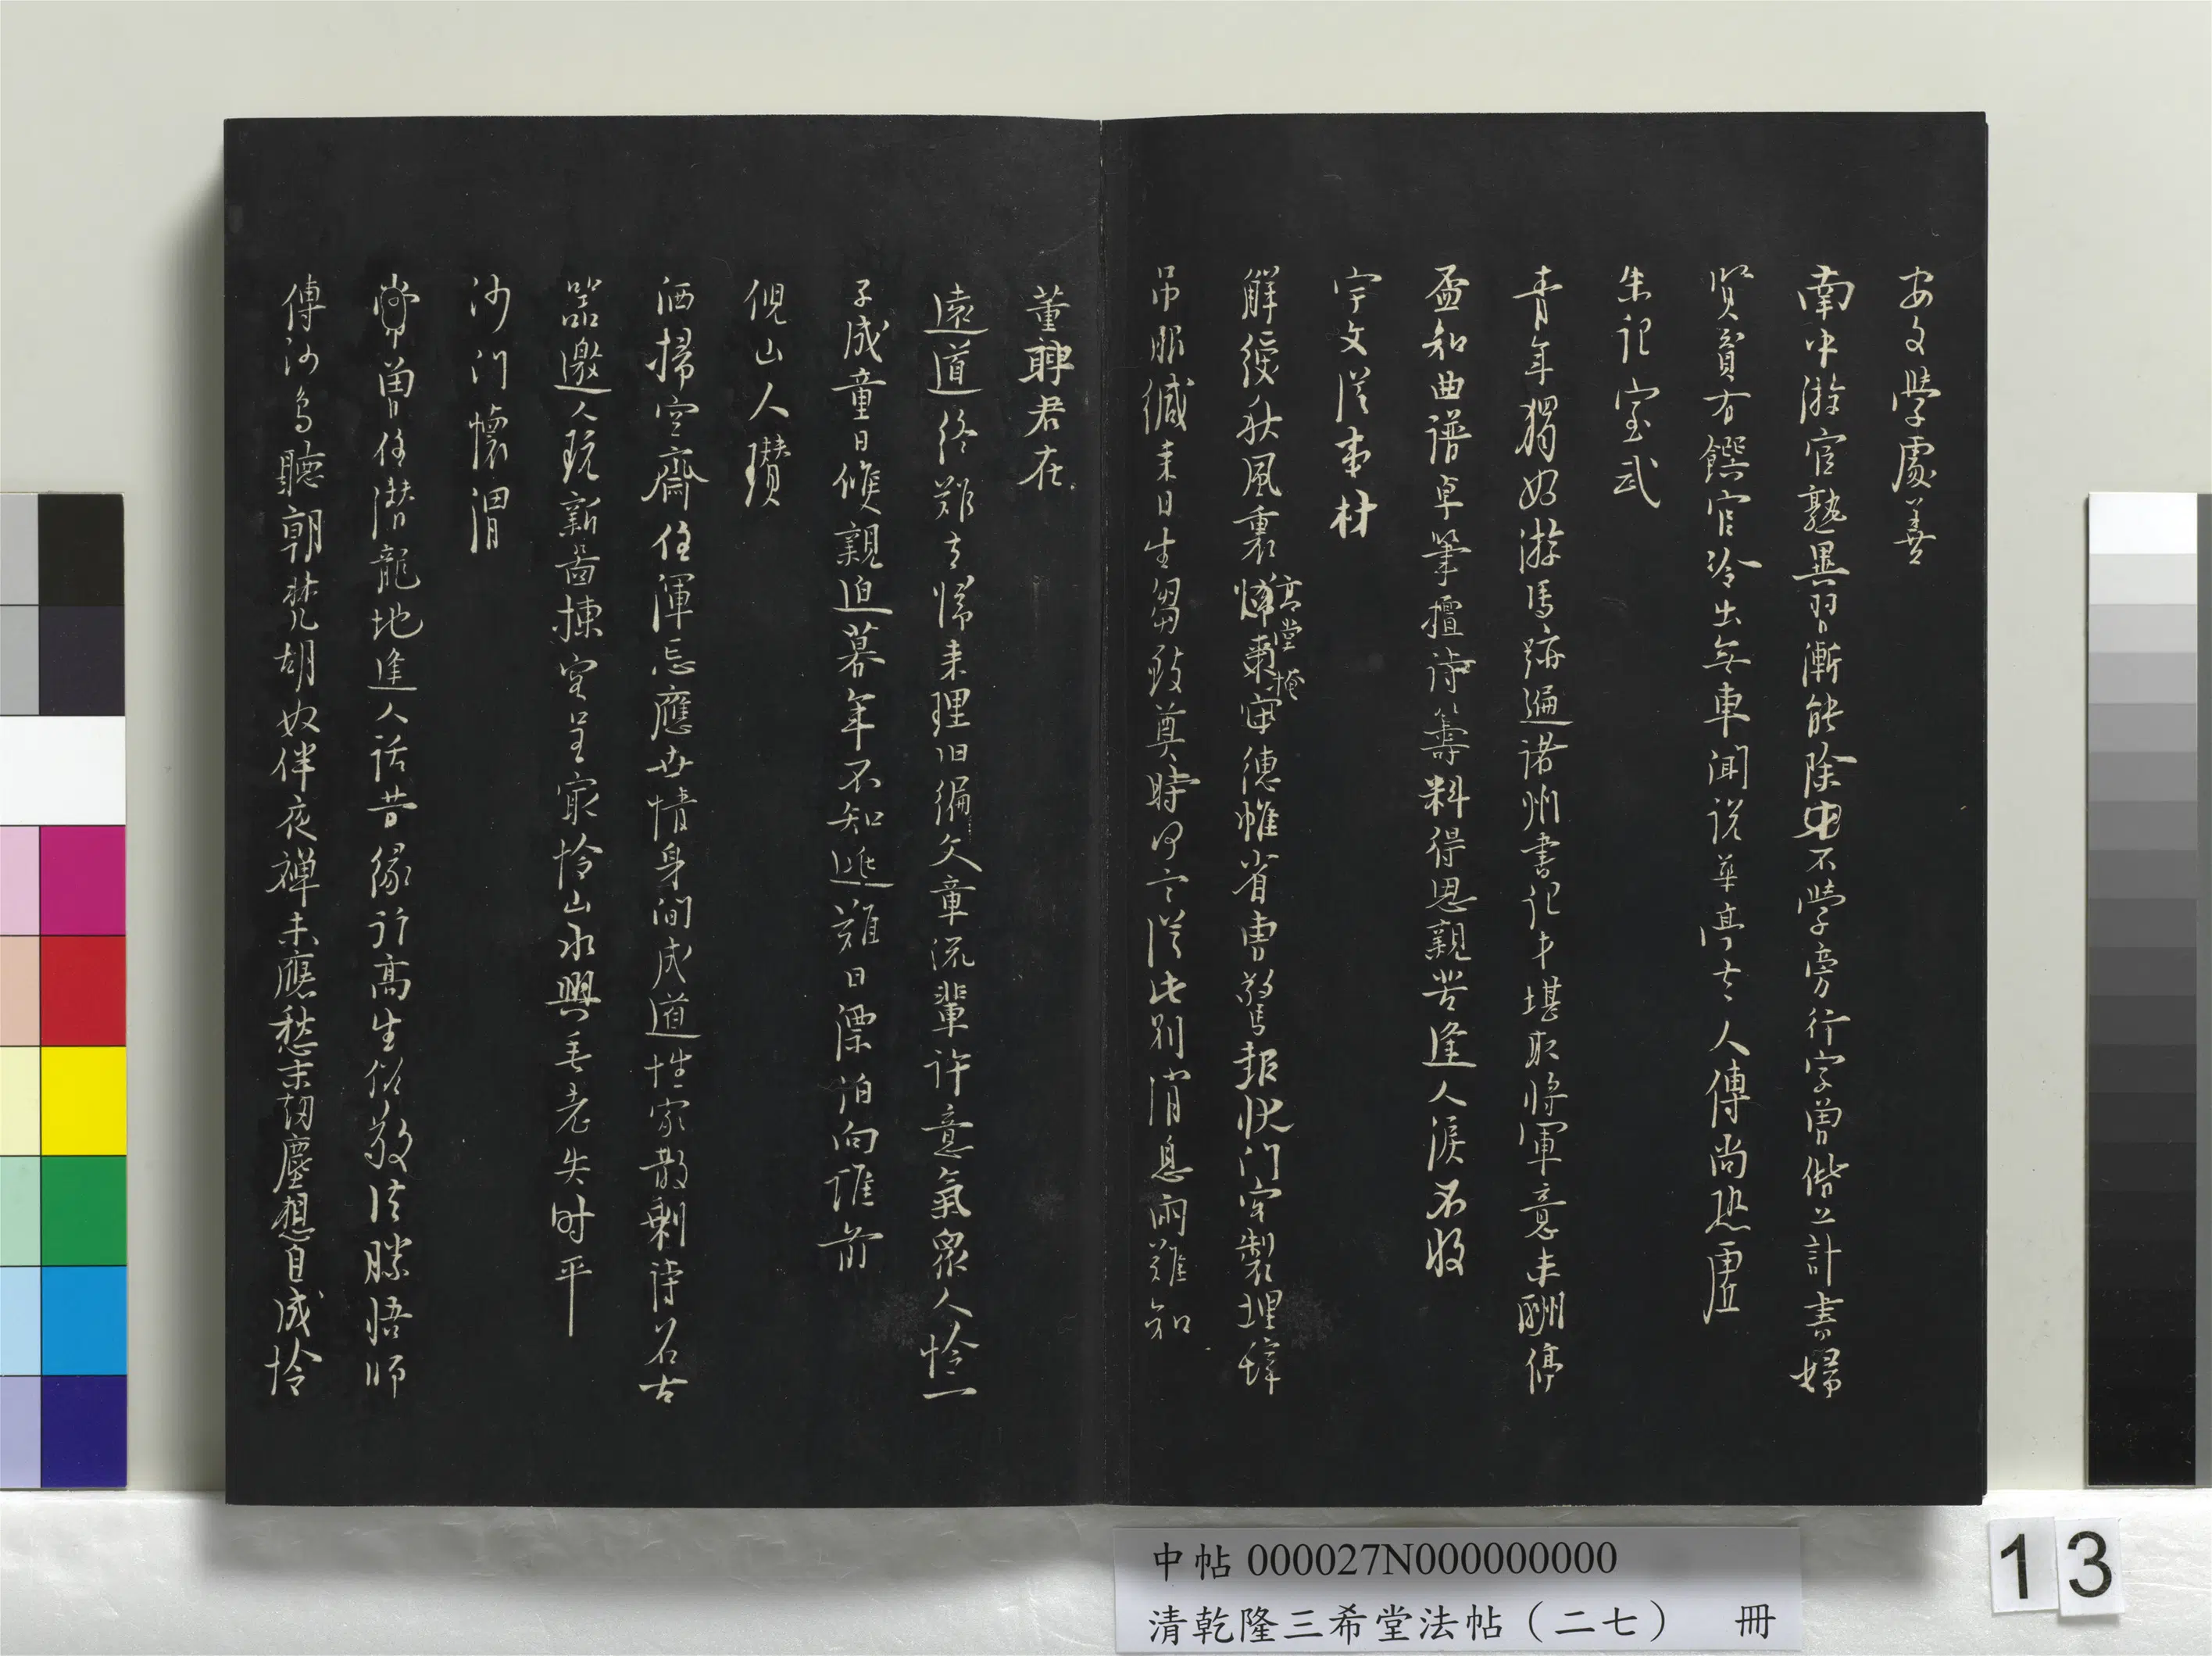 安文學處善
南中游宦熟異習漸能除不學旁行字曾偕上計書婦
賢貧有饌官冷出無車聞說華亭士人傳尚憑廬
朱記室武
青年獨好游馬跡遍諸州書記才堪取將軍意未酬停
盃知曲譜卓筆擅詩籌料得思親苦逢人淚不收
宇文從事材
解綬秋風裏高堂掩德帷省曹驚報狀門客製埋碑
吊服緘來日生芻致奠時何言從此別消息兩難知
董聘君在
遠道終鄭去歸來理旧編文章流輩許意氣眾人憐一
子成童日候親迫暮年不知避難日漂泊向誰前
倪山人瓚
洒掃空齋住渾忘應世情身閒成道性家散剩詩名古
器邀人玩新圖揀客呈寂憐山水興垂老失时平
沙門懷渭
曾住潛龍地逢人話昔緣行高生俗敬法勝悟師
傳沙鳥聽朝梵胡奴伴夜禪未應愁末劫塵想自成憐
中帖 000027N000000000
清乾隆三希堂法帖（二七） 冊
13